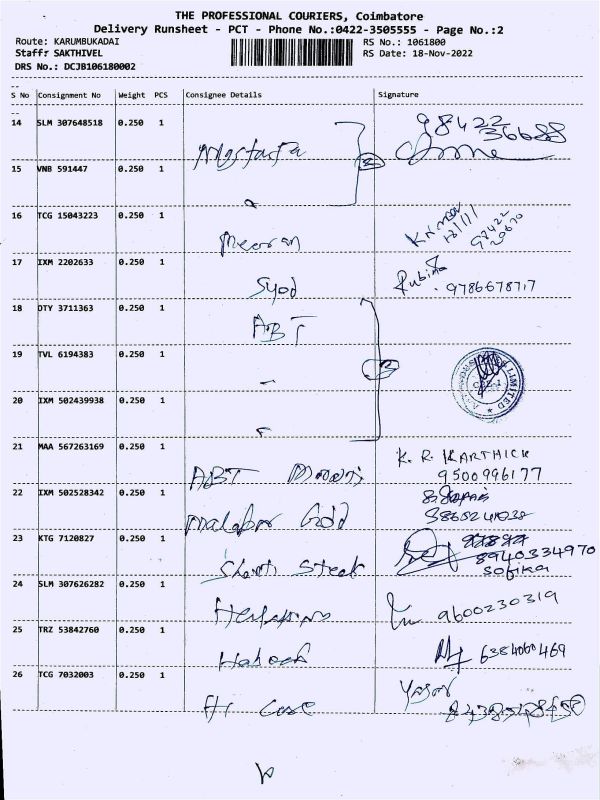 THE PROFESSIONAL COURIERS, Coimbatore
Delivery Runsheet - PCT - Phone No.:0422-3505555 - Page No.:2
Route: KARUMBUKADAI RS No.: 1061800
Staff: SAKTHIVEL RS Date: 18-Nov-2022
DRS No.: DCJB106180002
S No Consignment No Weight PCS Consignee Details Signature
14 SLM 307648518 0.250 1 98422
36688
Mustafa
15 VNB 591447 0.250 1
16 TCG 15043223 0.250 1
Meeran
17 IXM 2202633 0.250 1 Rubina
Syed 9786678717
18 DTY 3711363 0.250 1
ABT
19 TVL 6194383 0.250 1
20 IXM 502439938 0.250 1
21 MAA 567263169 0.250 1 K. R. KARTHICK
ABT 9500996177
22 IXM 502528342 0.250 1
Malabar Gold
23 KTG 7120827 0.250 1
8940334970
Shanti Steel Sofika
24 SLM 307626282 0.250 1
9600230319
25 TRZ 53842760 0.250 1
6384060469
26 TCG 7032003 0.250 1 Yasar